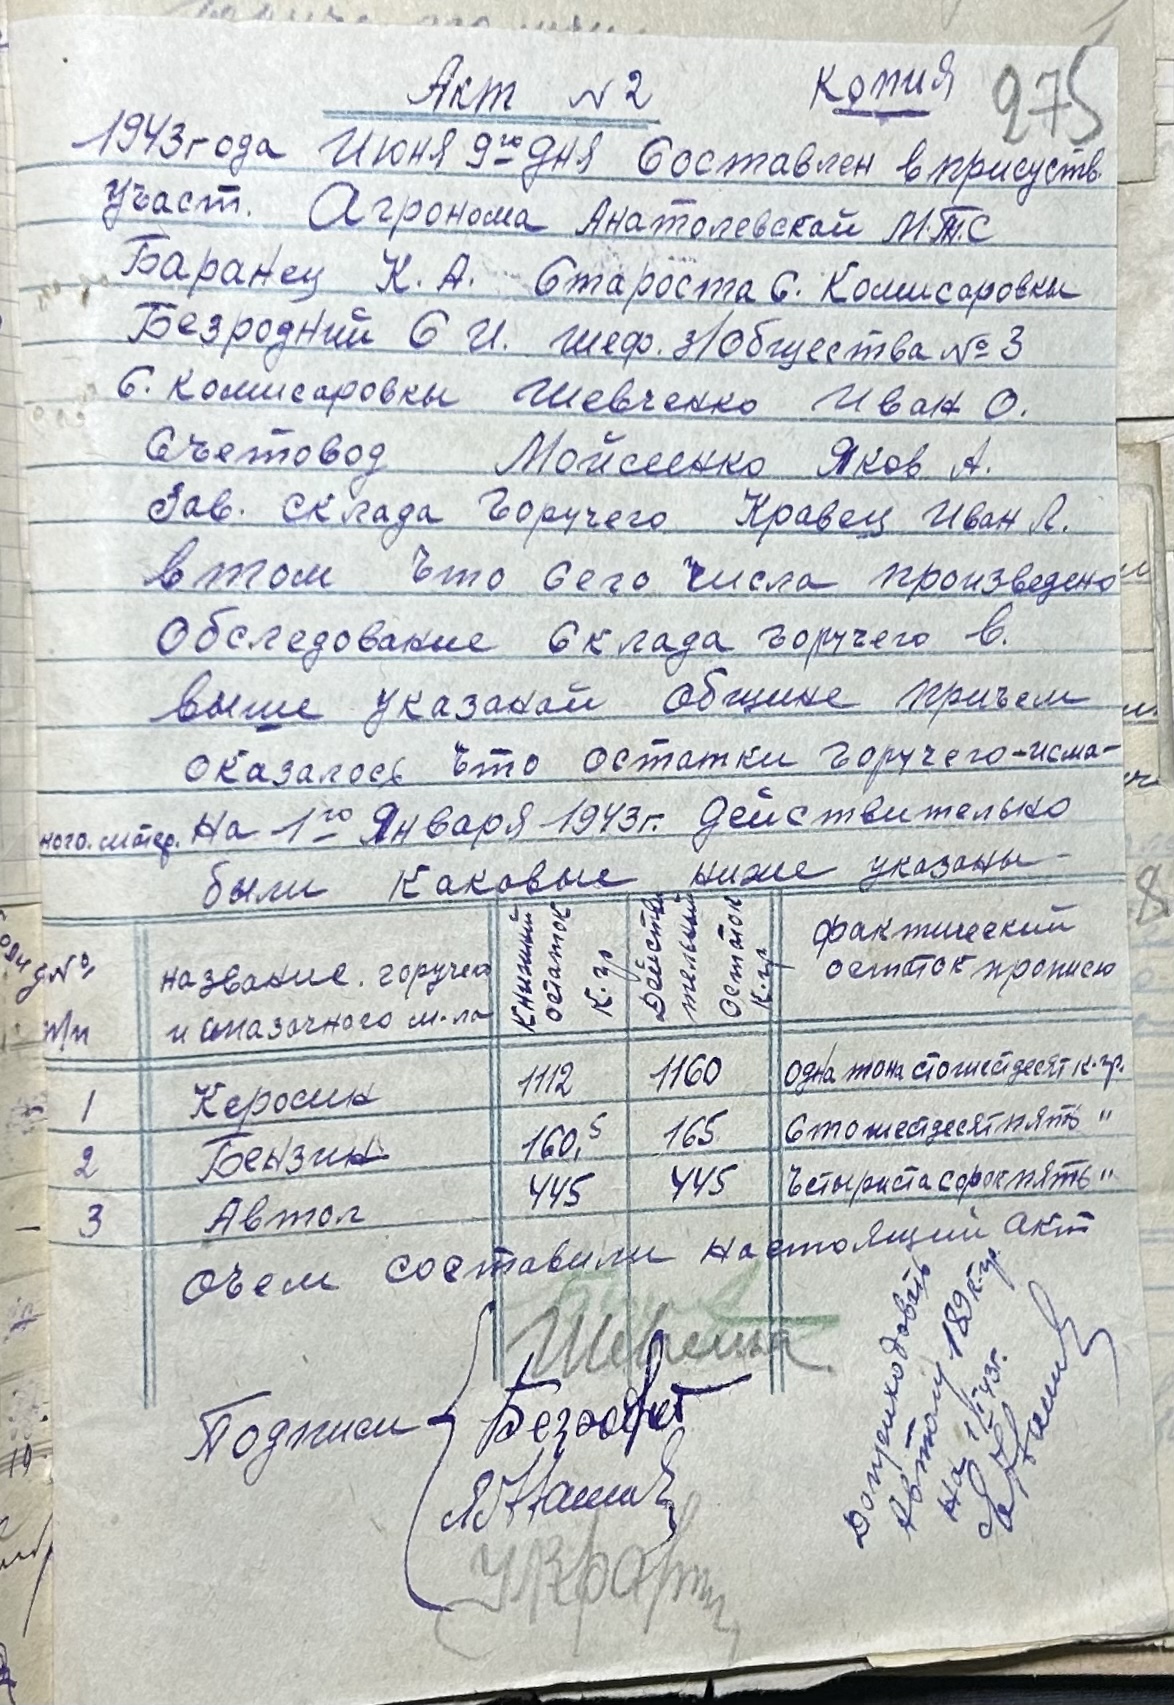 Акт №2 Копия 275
1943 года Июня 9го дня Составлен в присуств.
Участ. Агронома Анатолевской М.Т.С
Баранец К. А. Староста с. Комисаровкы
Безродний С И. шеф. з/Общества №3
с. Комисаровкы Шевченко Иван О.
Счетовод Мойсеенко Яков А.
Зав. склада горучего Кравец Иван Л.
в том что сего числа произведено
Обследование склада горучего в.
выше указаной общине причем
оказалось что остатки горучего-исма-
ного. матер. на 1го Января 1943г. действително
были каковые ниже указаны
№ п/п название. горучего и смазочного м-ла Книжный остаток к.гр Действительный остаток к.гр фактический остаток прописю
1 Керосин 1112 1160 одна тона сто шестдесят к.гр.
2 Бензин 160,5 165 Сто шестдесят пять "
3 Автол 445 445 Четыриста сорок пять "
Очем составили настоящий акт
Подписи
Допреходовать
Автолу 189 к-гр
На 1/I 43г.